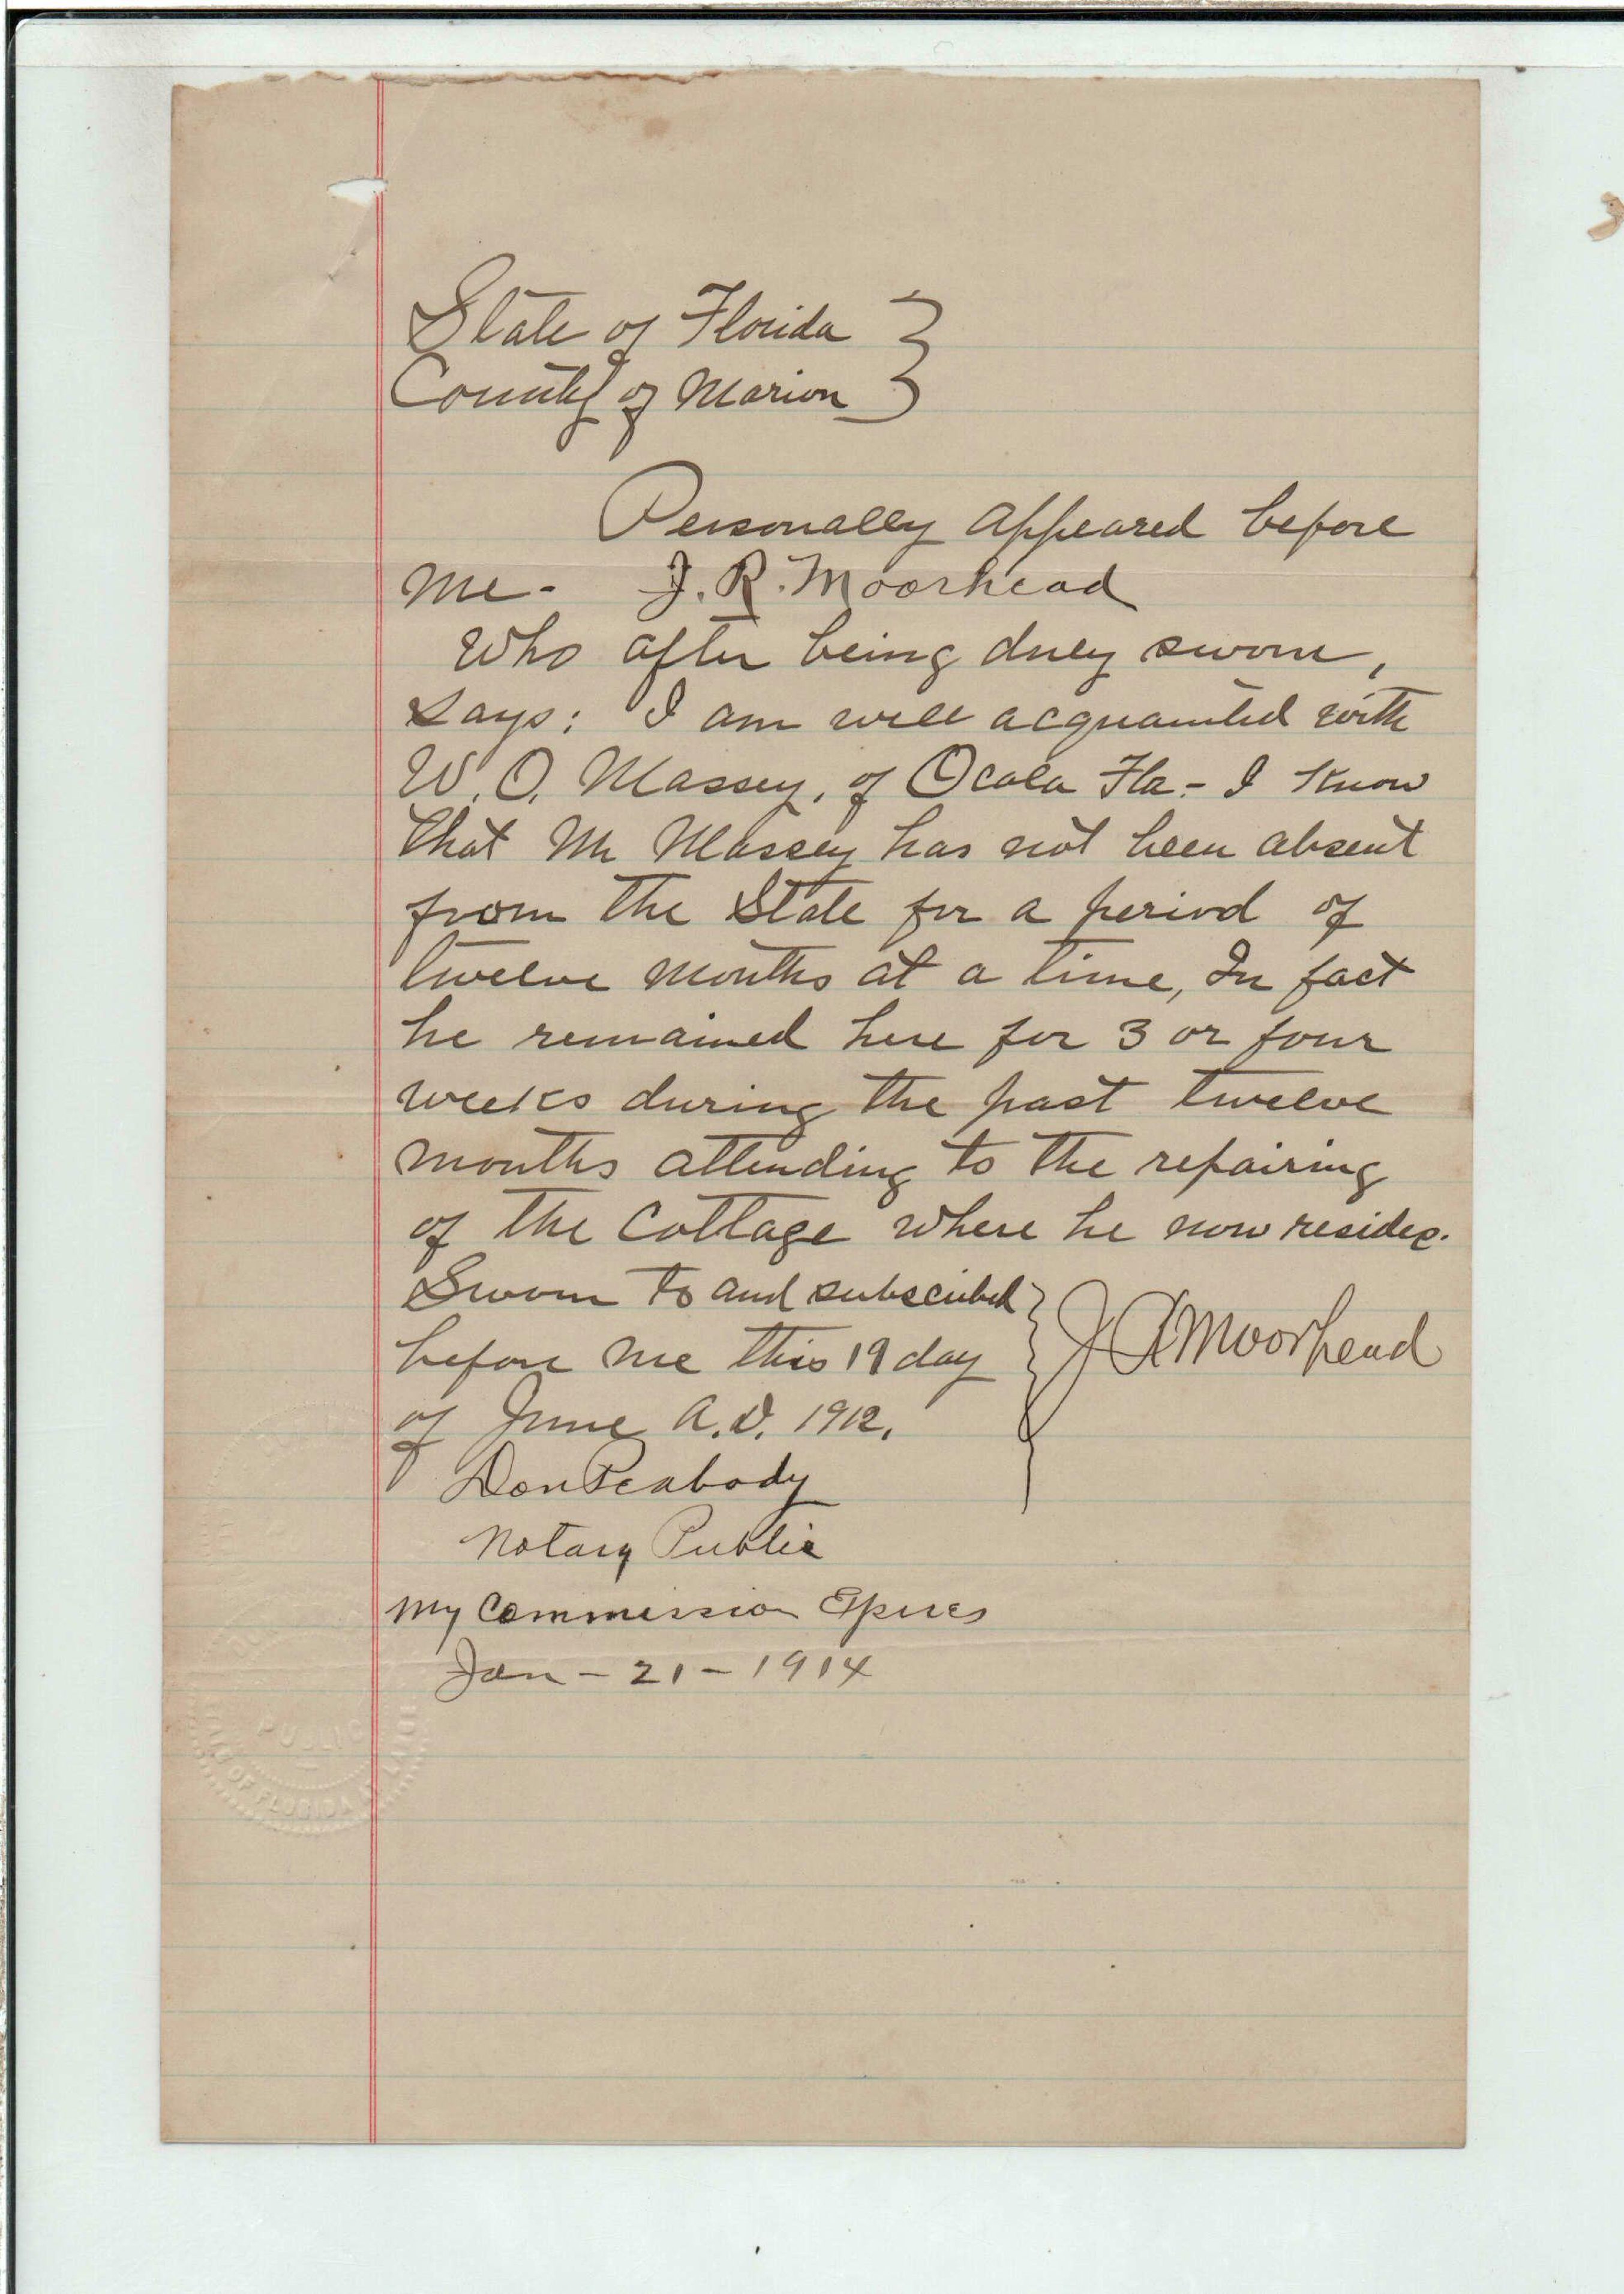 State of Florida }
County of Marion }
Personally appeared before
me - J. R. Moorhead
Who after being duly sworn,
says: I am well acquainted with
W. O. Massey, of Ocala Fla - I know
that Mr Massey has not been absent
from the State for a period of
twelve months at a time, In fact
he remained here for 3 or four
weeks during the past twelve
months attending to the repairing
of the cottage where he now resides.
Sworn to and subscribed } J R Moorhead
before me this 19 day
of June A.D. 1912.
Don Peabody
Notary Public
My Commission Expires
Jan - 21 - 1914
PUBLIC
STATE OF FLORIDA AT LARGE